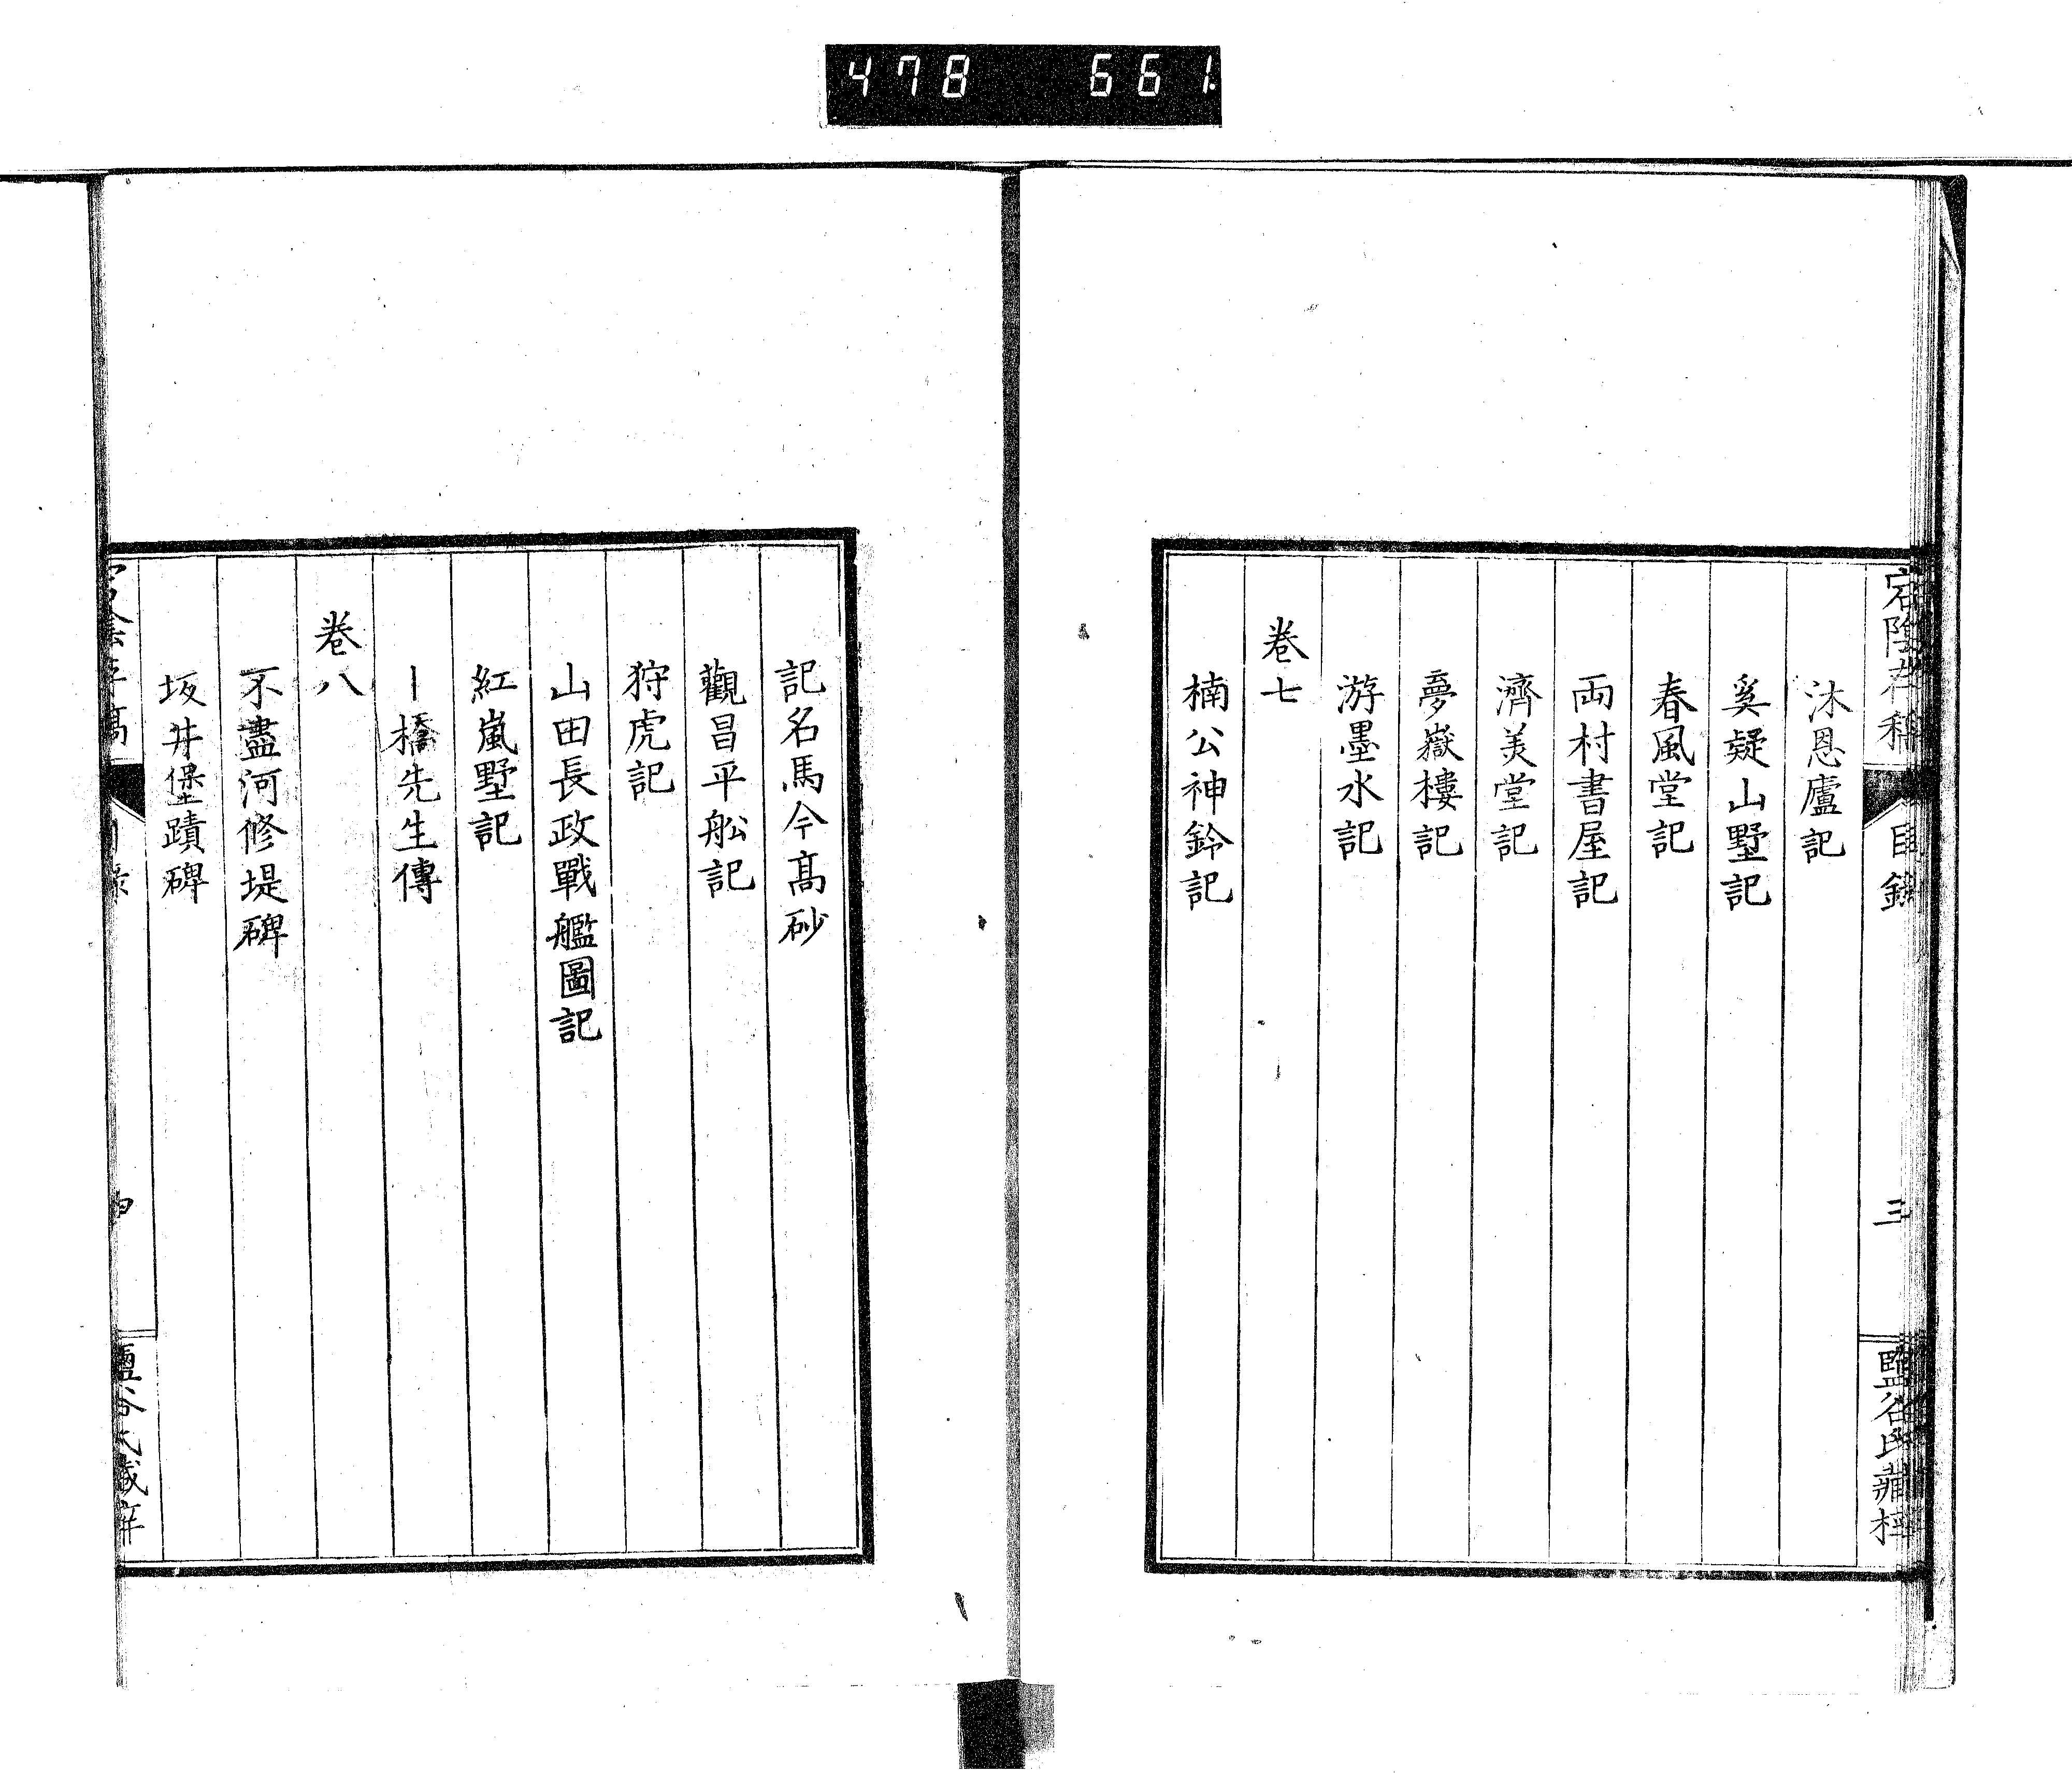 478 661
宕陰存稿 目錄 三 鹽谷氏藏梓
沐恩廬記
奚疑山墅記
春風堂記
両村書屋記
濟美堂記
夢嶽樓記
游墨水記
卷七
楠公神鈴記
記名馬今髙砂
觀昌平舩記
狩虎記
山田長政戰艦圖記
紅嵐墅記
丨橋先生傳
卷八
不盡河修堤碑
坂井堡蹟碑